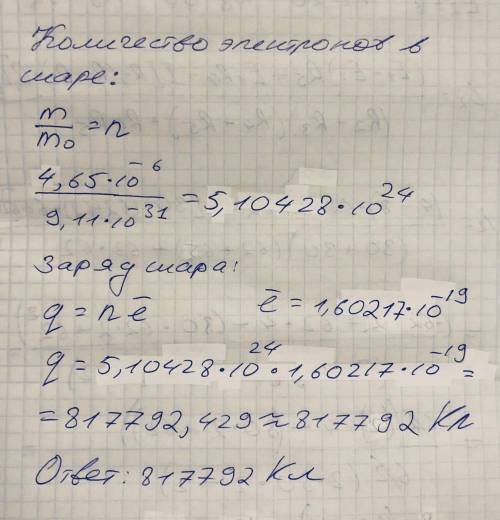 Количество электронов в
шаре:
m/m₀ = n
4,65·10⁻⁶/9,11·10⁻³¹ = 5,10428·10²⁴
Заряд шара:
q = n ē ē = 1,60217·10⁻¹⁹
q = 5,10428·10²⁴·1,60217·10⁻¹⁹ =
= 817792,429 ≈ 817792 Кл
Ответ: 817792 Кл